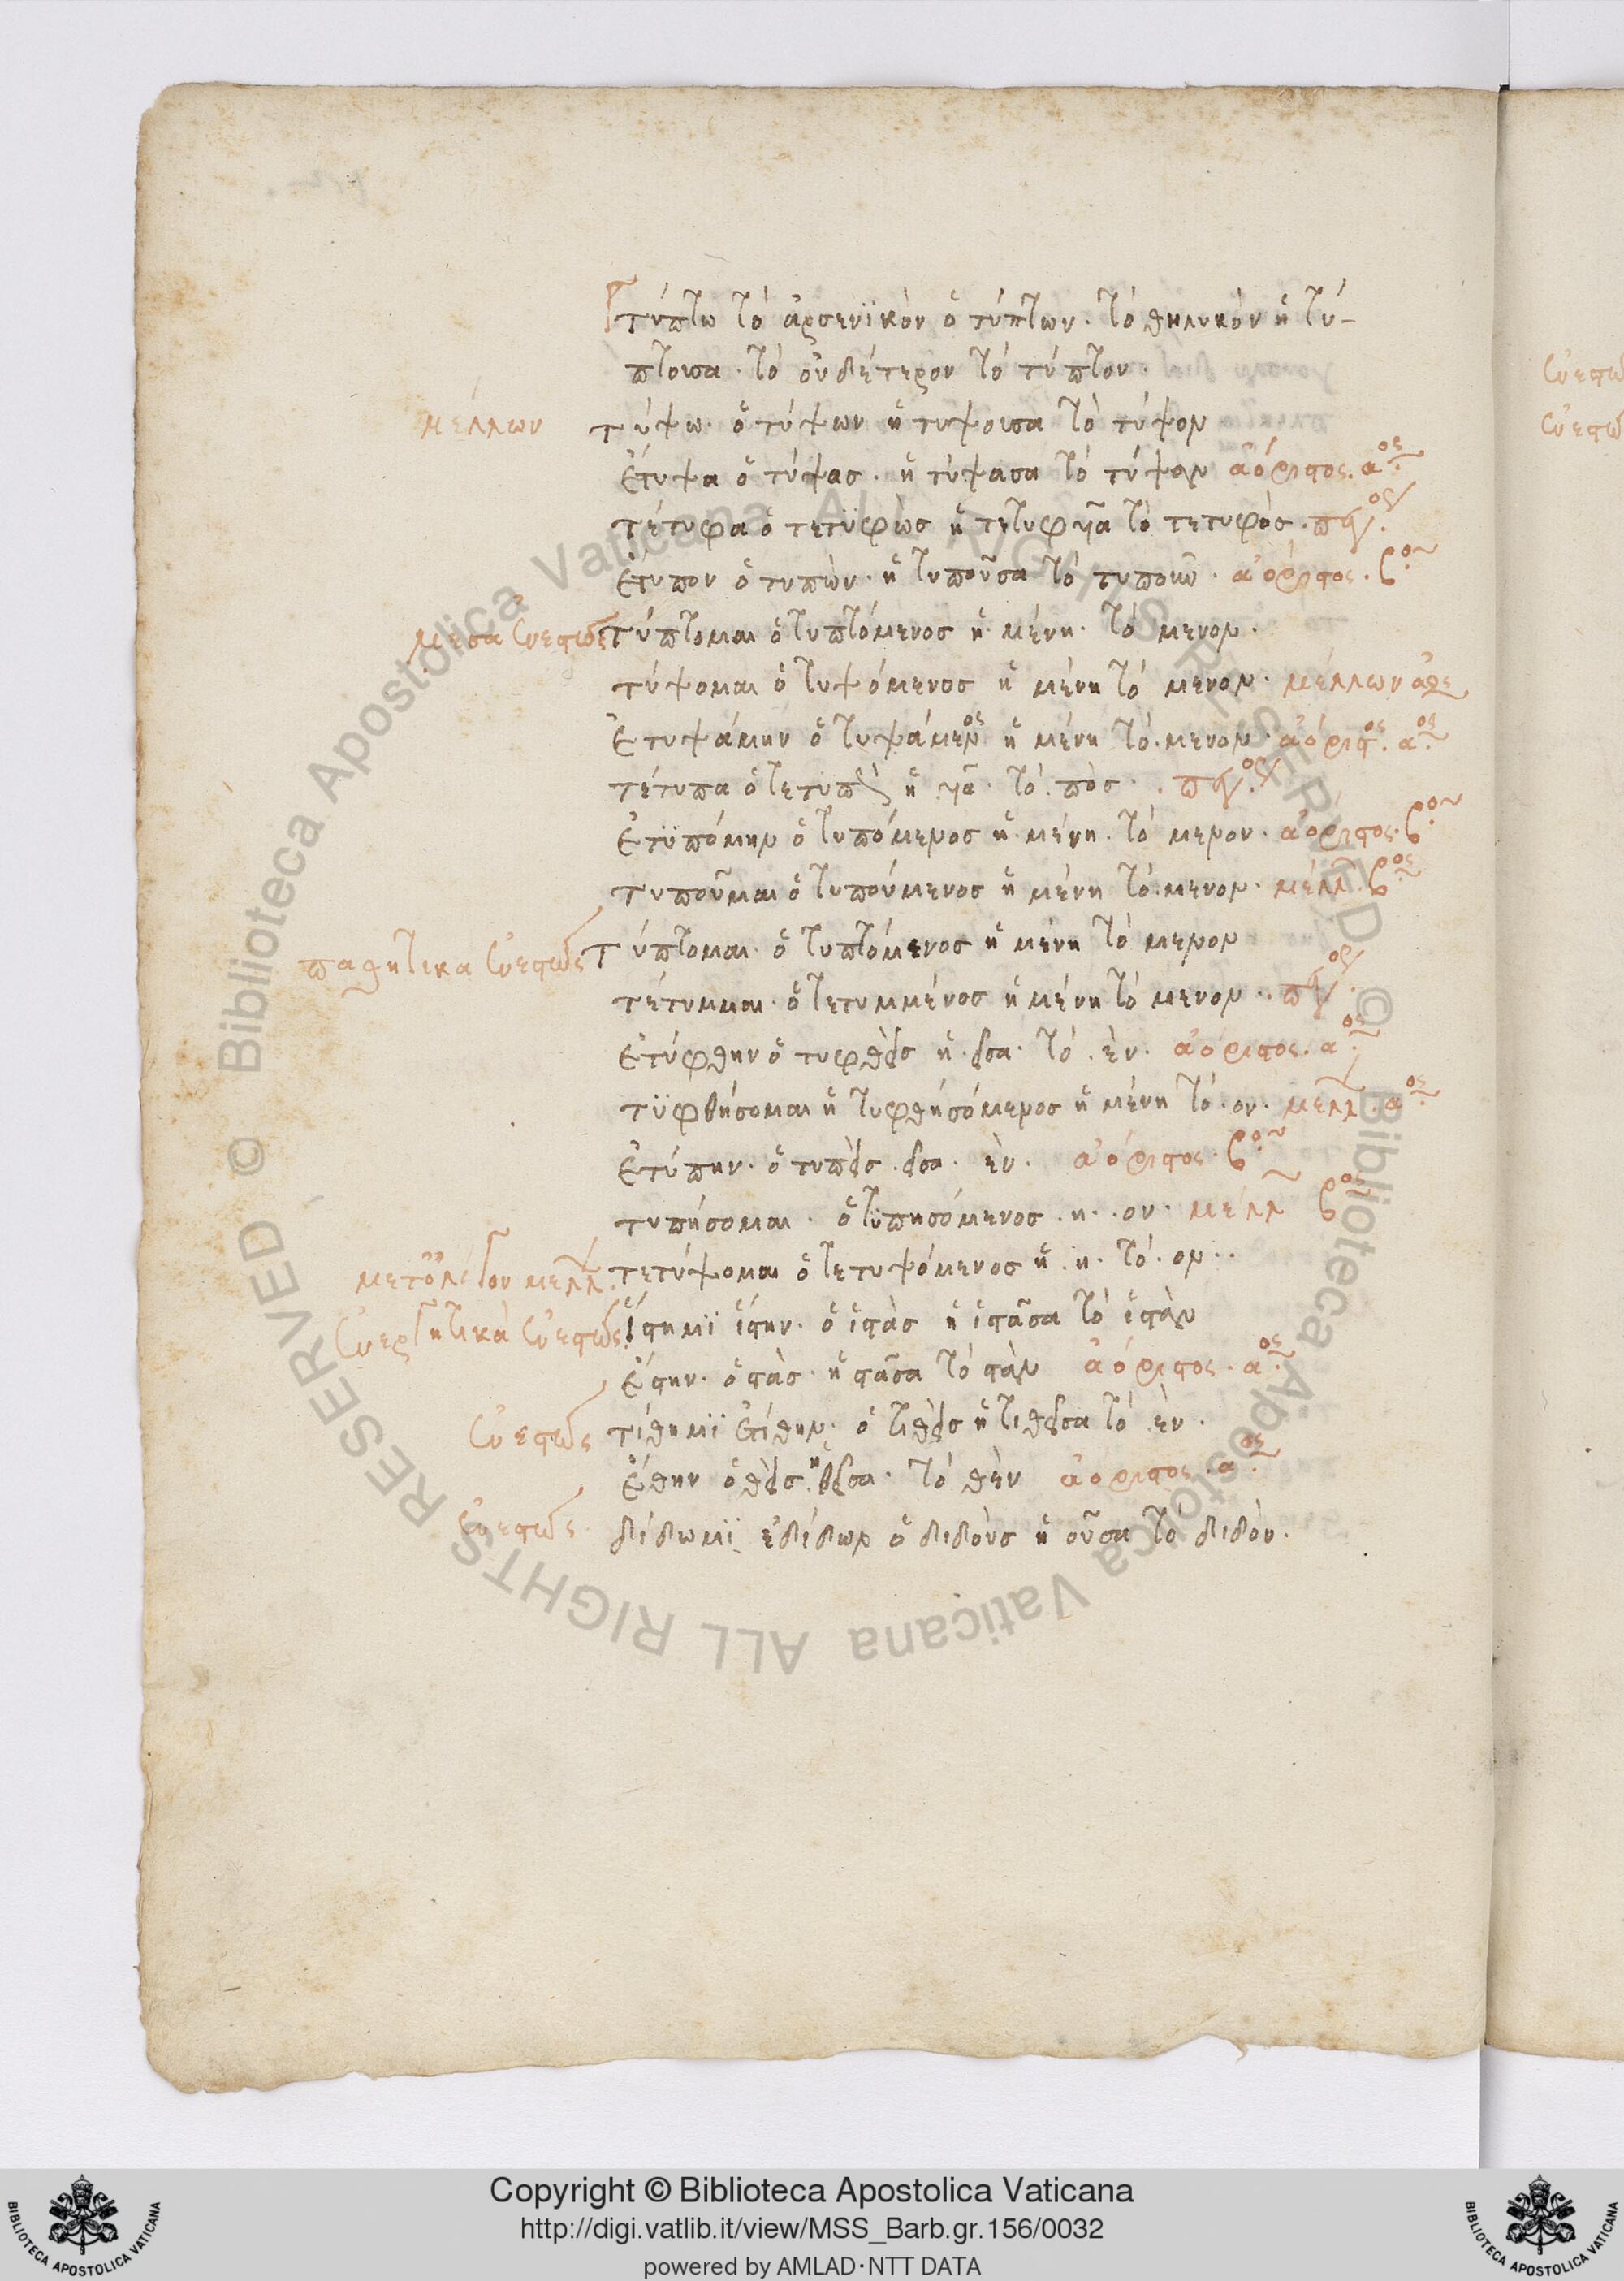 τύπτω τὸ ἀρσενϊκὸν ὁ τύπτων· τὸ θηλυκὸν ἡ τύ-
πτουσα· τὸ οὐδέτερον τὸ τύπτον·
μέλλων τύψω· ὁ τύψων ἡ τύψουσα τὸ τύψον
ἔτυψα ὁ τύψας· ἡ τύψασα τὸ τύψαν ἀόριστος· αος
τέτυφα ὁ τετϋφὼς ἡ τετυφυῖα τὸ τετυφὸς·
ἔτυπον ὁ τυπὼν· ἡ τυποῦσα τὸ ἀόριστος· βος
μεσα ἐνεστὼς τύπτομαι ὁ τυπτόμενος ἡ μένη· τὸ μενον·
τύψομαι ὁ τυψόμενος ἡ μένη τὸ μενον· μέλλων αος
ἐτυψάμην ὁ τυψάμενος ἡ μένη τὸ· μενον· ἀόριστος· αος
τέτυπα ὁ τετυπὼς ἡ υῖα· τὸ πὸς·
ἐτϋπόμην ὁ τυπόμενος ἡ μένη· τὸ μενον· ἀόριστος· βος
τυποῦμαι ὁ τυπούμενος ἡ μένη τὸ· μενον· μέλλ βος
παθητικα ἐνεστὼς τύπτομαι· ὁ τυπτόμενος ἡ μένη τὸ μενον
τέτυμμαι· ὁ τετυμμένος ἡ μένη τὸ μενον·
ἐτύφθην ὁ τυφθεὶς ἡ· εισα· τὸ· ὲν· ἀόριστος· αος
τϋφθήσομαι ἡ τυφθησόμενος ἡ μένη τὸ· ον· μελλ· αος
ἐτύπην· ὁ τυπεὶς· εισα· ὲν· ἀόριστος· βος
τυπήσομαι· ὁ τϋπησόμενος· η· ον· μέλλ βος
μετ ὀλίγον μελλ· τετύψομαι ὁ τετυψόμενος ἡ· η· τὸ· ον··
ἐνεργητικὰ ἐνεστὼς ἵστημϊ ἵστην· ὁ ἱστὰς ἡ ἱστᾶσα τὸ ἱστὰν
ἔστην· ὁ στὰς· ἡ στᾶσα τὸ στὰν ἀόριστος· αος
ἐνεστὼς τίθημϊ ἐτίθην· ὁ τιθεὶς ἡ τιθεῖσα τὸ ὲν·
ἔθην ὁ θεὶς ἡ θεῖσα· τὸ θὲν ἀόριστος· αος
ἐνεστὼς· δίδωμϊ ἐδίδων ὁ διδοὺς ἡ οῦσα τὸ διδὸν·
Copyright © Biblioteca Apostolica Vaticana
http://digi.vatlib.it/view/MSS_Barb.gr.156/0032
powered by AMLAD·NTT DATA
BIBLIOTECA APOSTOLICA VATICANA
BIBLIOTECA APOSTOLICA VATICANA
© Biblioteca Apostolica Vaticana ALL RIGHTS RESERVED © Biblioteca Apostolica Vaticana ALL RIGHTS RESERVED